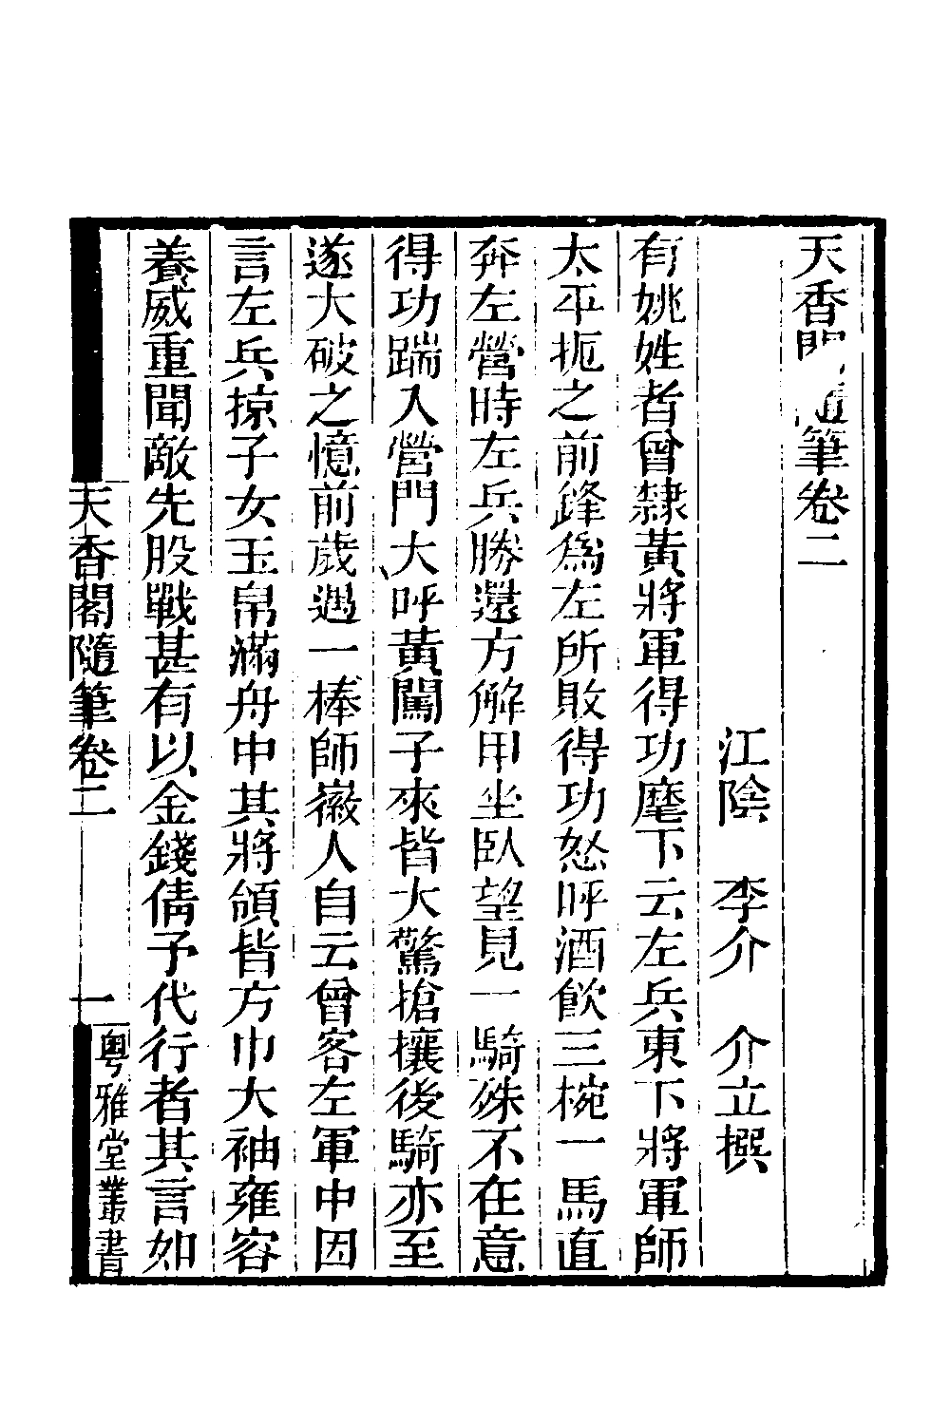 天香閣隨筆卷二
江陰 李介 介立撰
有姚姓者曾隸黃將軍得功麾下云左兵東下將軍師
太平扼之前鋒爲左所敗得功怒呼酒飮三椀一馬直
奔左營時左兵勝還方解甲坐臥望見一騎殊不在意
得功踹入營門大呼黃闖子來皆大驚搶攘後騎亦至
遂大破之憶前歲遇一棒師徽人自云曾客左軍中因
言左兵掠子女玉帛滿舟中其將領皆方巾大袖雍容
養威重聞敵先股戰甚有以金錢倩予代行者其言如
天香閣隨筆卷二
一
粵雅堂叢書